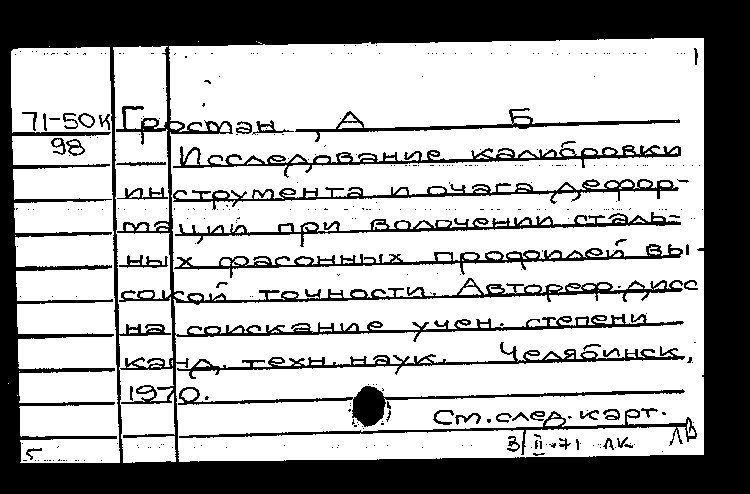 1
71-50к Гростан, А Б
98 Исследование калибровки
инструмента и очага дефор-
маций при волочении сталь-
ных фасонных профилей вы-
сокой точности. Автореф. дисс
на соискание учен. степени
канд. техн. наук. Челябинск,
1970.
Ст. след. карт.
5 3/II-71 ЛК ЛВ